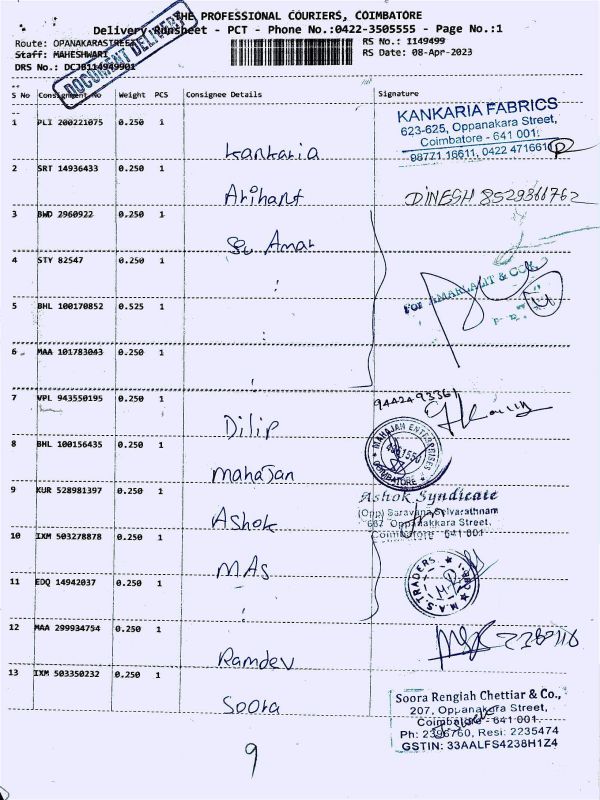 THE PROFESSIONAL COURIERS, COIMBATORE
Delivery Runsheet - PCT - Phone No.:0422-3505555 - Page No.:1
DOCUMENT DELIVERY
Route: OPANAKARASTREET
RS No.: 1149499
Staff: MAHESHWARI
RS Date: 08-Apr-2023
DRS No.: DCJB114949901
S No Consignment No Weight PCS Consignee Details Signature
1 PLI 200221075 0.250 1 Kankaria
KANKARIA FABRICS
623-625, Oppanakara Street,
Coimbatore - 641 001.
98771 16611, 0422 4716611
2 SRT 14936433 0.250 1 Arihant DINESH 8529866762
3 BWD 2960922 0.250 1 Amar
4 STY 82547 0.250 1
For AMARLALIT & CO.
5 BHL 100170852 0.525 1
6 MAA 101783043 0.250 1
7 VPL 943550195 0.250 1 Dilip 9442493361
8 BHL 100156435 0.250 1 mahajan
MAHAJAN ENTERPRISES
COIMBATORE
9 KUR 528981397 0.250 1 Ashok
Ashok Syndicate
(Opp) Saravana Selvarathnam
667 Oppanakkara Street,
Coimbatore 641 001
10 IXM 503278878 0.250 1 MAS
M.A.S. TRADERS CBE-1
11 EDQ 14942037 0.250 1
12 MAA 299934754 0.250 1 Ramdev
13 IXM 503350232 0.250 1 Soora
Soora Rengiah Chettiar & Co.,
207, Oppanakara Street,
Coimbatore - 641 001.
Ph: 2396760, Resi: 2235474
GSTIN: 33AALFS4238H1Z4
9